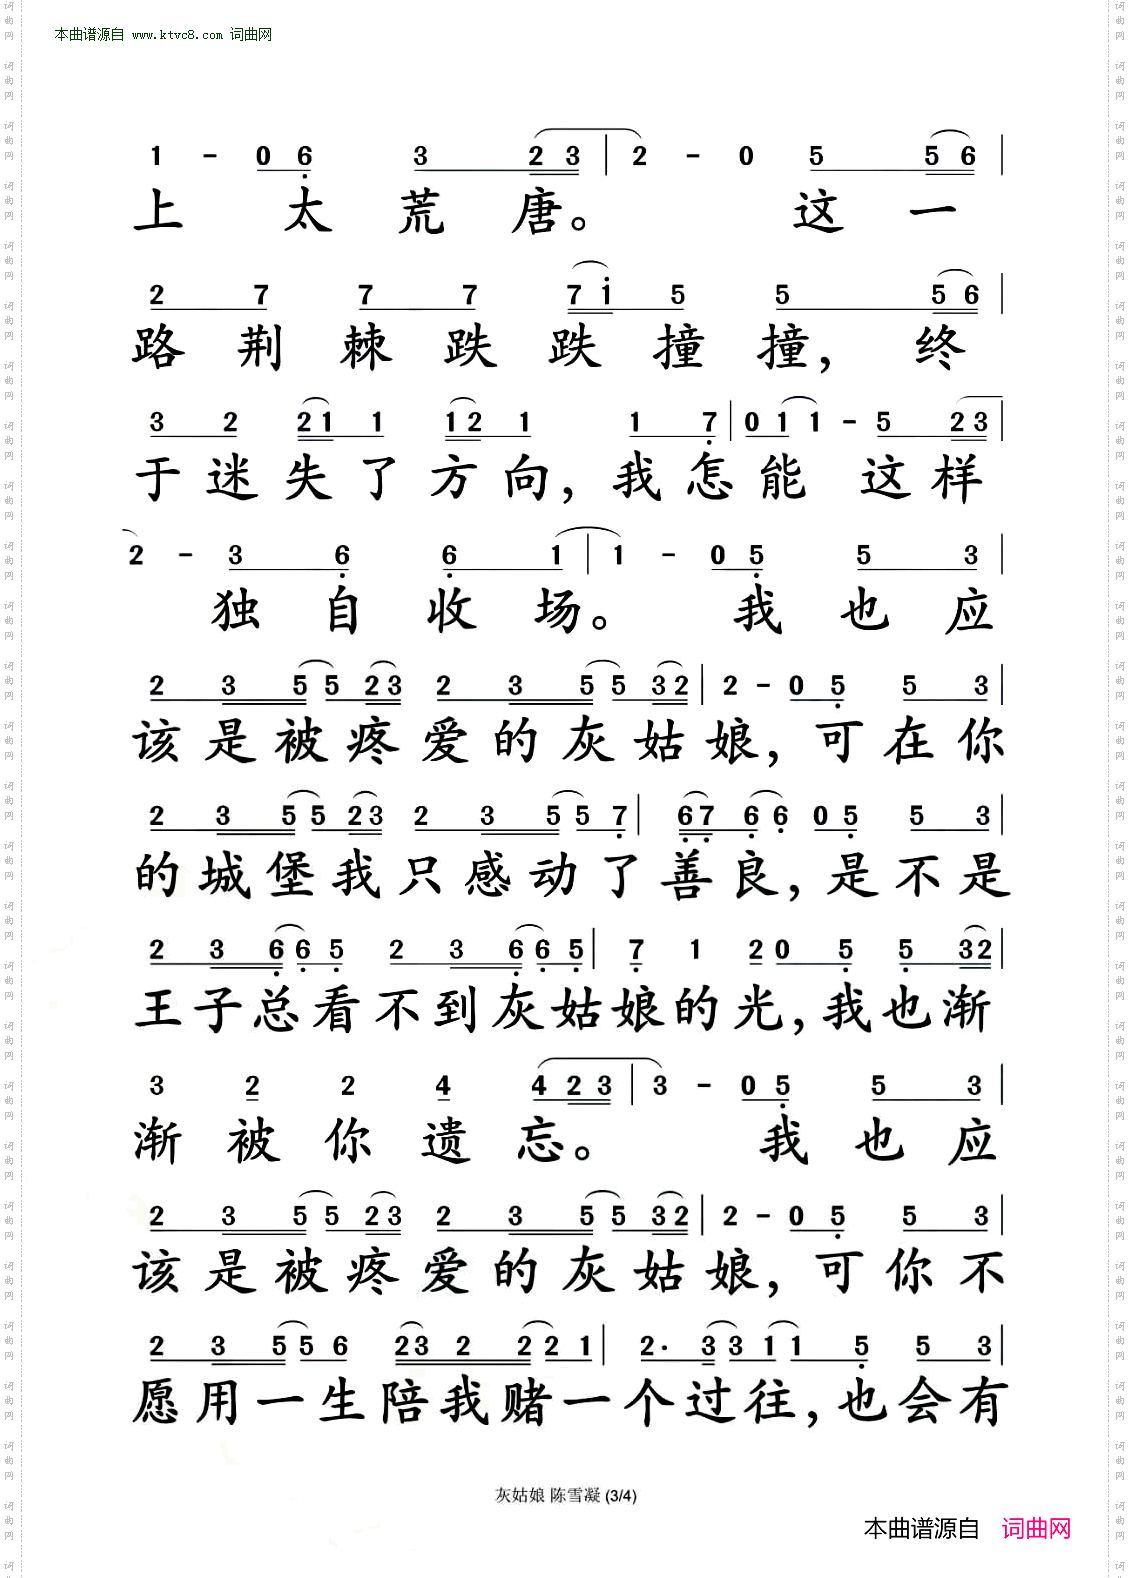 本曲谱源自 www.ktvc8.com 词曲网
1 - 0 6 3 2 3 | 2 - 0 5 5 6 |
上 太 荒 唐。 这 一
2 7 7 7 7 i 5 5 5 6 |
路 荆 棘 跌 跌 撞 撞, 终
3 2 2 1 1 1 2 1 1 7 | 0 1 1 - 5 2 3 |
于 迷 失 了 方 向, 我 怎 能 这 样
2 - 3 6 6 1 | 1 - 0 5 5 3 |
独 自 收 场。 我 也 应
2 3 5 5 2 3 2 3 5 5 3 2 | 2 - 0 5 5 3 |
该 是 被 疼 爱 的 灰 姑 娘, 可 在 你
2 3 5 5 2 3 2 3 5 5 7 | 6 7 6 6 0 5 5 3 |
的 城 堡 我 只 感 动 了 善 良, 是 不 是
2 3 6 6 5 2 3 6 6 5 | 7 1 2 0 5 5 3 2 |
王 子 总 看 不 到 灰 姑 娘 的 光, 我 也 渐
3 2 2 4 4 2 3 | 3 - 0 5 5 3 |
渐 被 你 遗 忘。 我 也 应
2 3 5 5 2 3 2 3 5 5 3 2 | 2 - 0 5 5 3 |
该 是 被 疼 爱 的 灰 姑 娘, 可 你 不
2 3 5 5 6 2 3 2 2 2 1 | 2. 3 3 1 1 5 5 3 |
愿 用 一 生 陪 我 赌 一 个 过 往, 也 会 有
灰姑娘 陈雪凝 (3/4)
本曲谱源自 词曲网